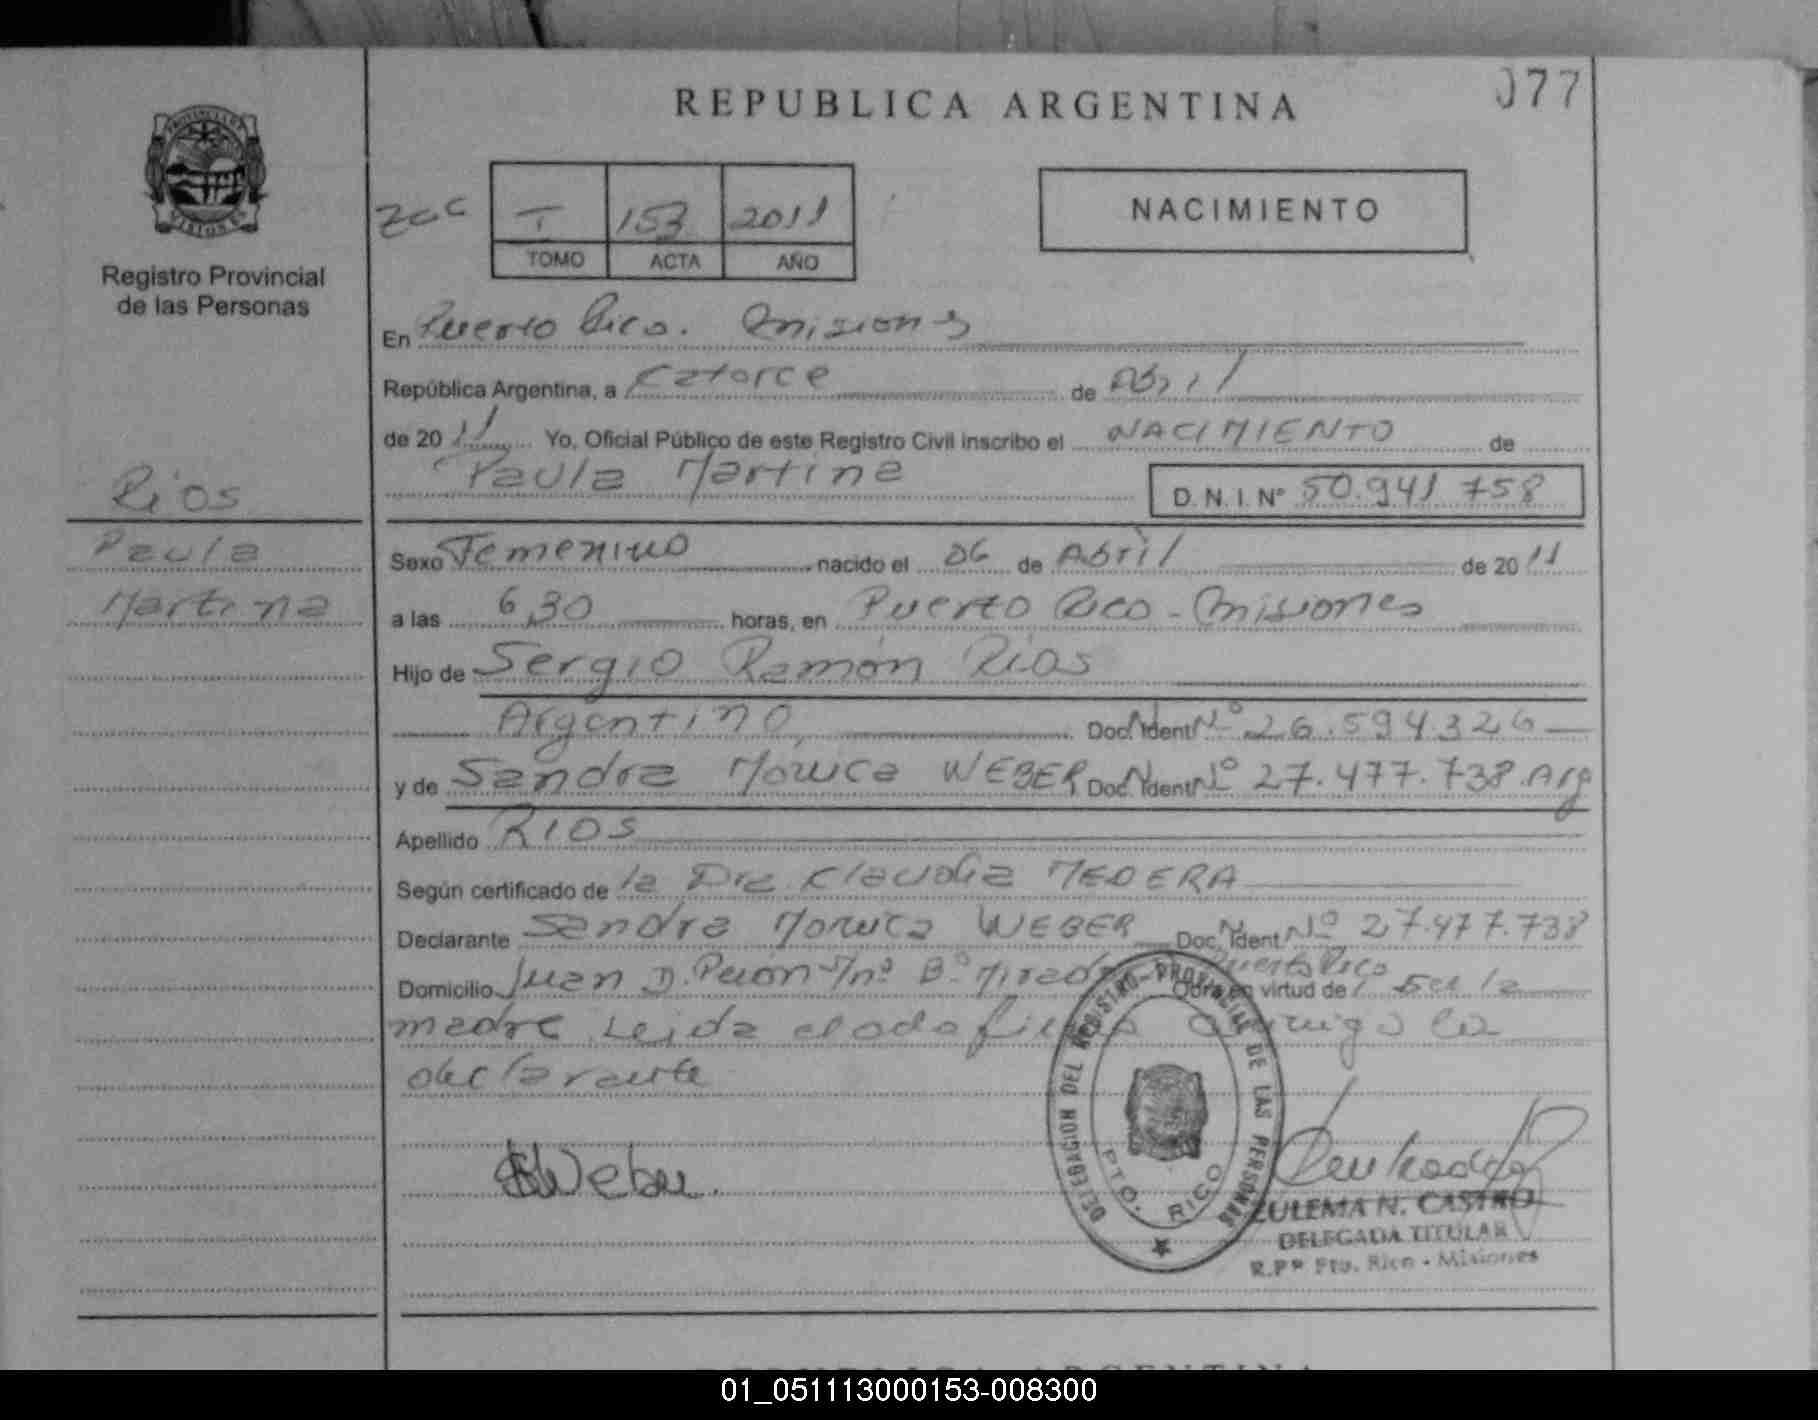 077
REPUBLICA ARGENTINA
PROVINCIA DE MISIONES
Registro Provincial
de las Personas
I 153 2011
TOMO ACTA AÑO
NACIMIENTO
En Puerto Rico. Misiones
República Argentina, a Catorce de Abril
de 2011 Yo, Oficial Público de este Registro Civil inscribo el NACIMIENTO de
Paula Martina D.N.I. Nº 50.941.758
Rios
Paula
Martina
Sexo Femenino nacido el 06 de Abril de 2011
a las 6,30 horas, en Puerto Rico - Misiones
Hijo de Sergio Ramón Rios
Argentino, Doc. Ident Nº 26.594.326
y de Sandra Monica WEBER Doc. Ident Nº 27.477.738 Arg
Apellido RIOS
Según certificado de la Dra. Claudia MEDERA
Declarante Sandra Monica WEBER Doc. Ident Nº 27.477.738
Domicilio Juan D. Perón s/nº Bº Puerto Rico Obra en virtud de Ser la
madre Leida el acta firma conmigo la
declarante
SWeber.
DELEGACION DEL REGISTRO PROVINCIAL DE LAS PERSONAS
PTO. RICO
ZULEMA N. CASTRO
DELEGADA TITULAR
R.PP Pto. Rico - Misiones
REPUBLICA ARGENTINA
01_051113000153-008300